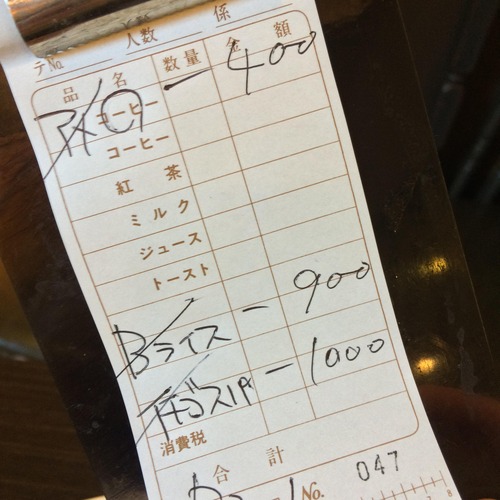 テNo 人数 係
品 名 数量 金 額
コーヒー 一 400
コーヒー
紅 茶
ミルク
ジュース
トースト
Bライス 一 900
一 1000
消費税
合 計
No. 047